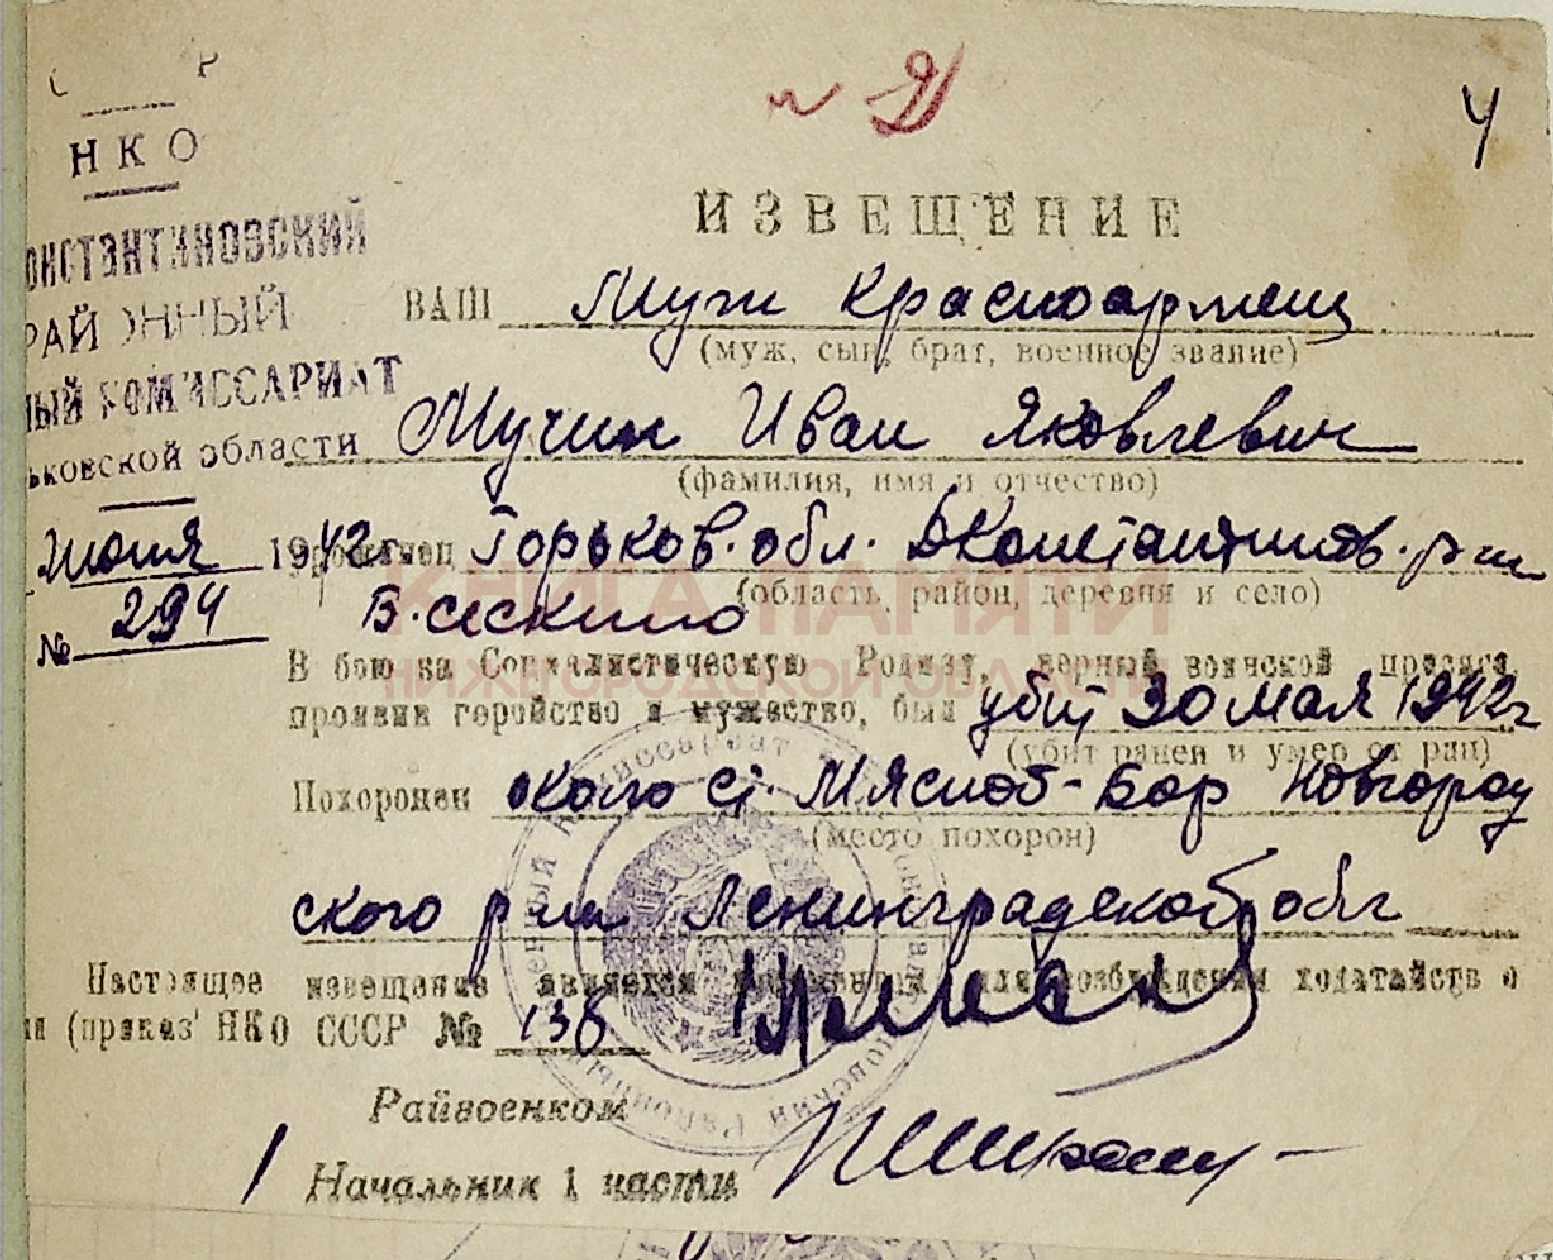 4
НКО
ОНСТАНТИНОВСКИЙ
РАЙОННЫЙ
НЫЙ КОМИССАРИАТ
ьковской области
июня 1942 г.
№ 294
ИЗВЕЩЕНИЕ
ВАШ муж красноармеец
(муж, сын, брат, военное звание)
Мучин Иван Яковлевич
(фамилия, имя и отчество)
Горьков. обл. ДКонстантинов. р-н
(область, район, деревня и село)
Б. сескино
КНИГА ПАМЯТИ
НИЖЕГОРОДСКОЙ ОБЛАСТИ
В бою за Социалистическую Родину, верный воинской присяге,
проявив геройство и мужество, был убит 20 мая 1942 г
(убит ранен и умер от ран)
Похоронен около ст. Мясной-Бор Новгород
(место похорон)
ского р-на Ленинградской обл
Настоящее извещение является для возбуждения ходатайств о
и (приказ НКО СССР № 138
Райвоенком
Начальник 1 части